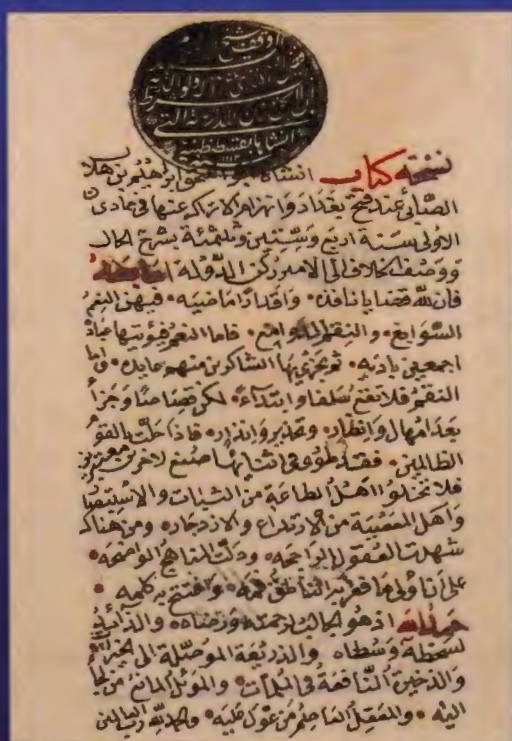 نسخة كتاب انشاه ابو اسحق ابراهيم بن هلال
الصّابي عند فتح بغداد وانهزام الاتراك عنها في جمادى
الاولى سنة اربع وستين وثلثمئة بشرح الحال
ووصف الخلاف الى الامير ركن الدولة اما بعد
فان لله قضايا نافذه واقدارا ماضيه فيهن النعم
السوابغ والنقم الدوامغ فاما النعم فيؤتيها عباده
اجمعين باديه ثم يجزي بها الشاكرين منهم عايده واما
النقم فلا تقع سلفا وابتداء لكن قصاصا وجزاء
بعد امهال وانظار وتحذير وانذار فاذا حلت بالقوم
الظالمين فقد طوى في اثنائها صنع لاخرين معتبرين
فلا تخلوا اهل الطاعة من الثبات والاستبصار
واهل المعصية من الارتداع والازدجار ومن هناك
شهدت العقول الراجحه ودلت المناهج الواضحه
على ان اولى ما فغر به الناطق فمه وافتتح به كلمه
حمد الله اذ هو الجالب لرحمته ورضاه والذائد
لسخطه وسطاه والذريعة الموصلة الى الخير
والذخيرة النافعة في الملمات والموئل المانع من لجا
اليه والمعقل العاصم من عول عليه والحمد لله رب العالمين